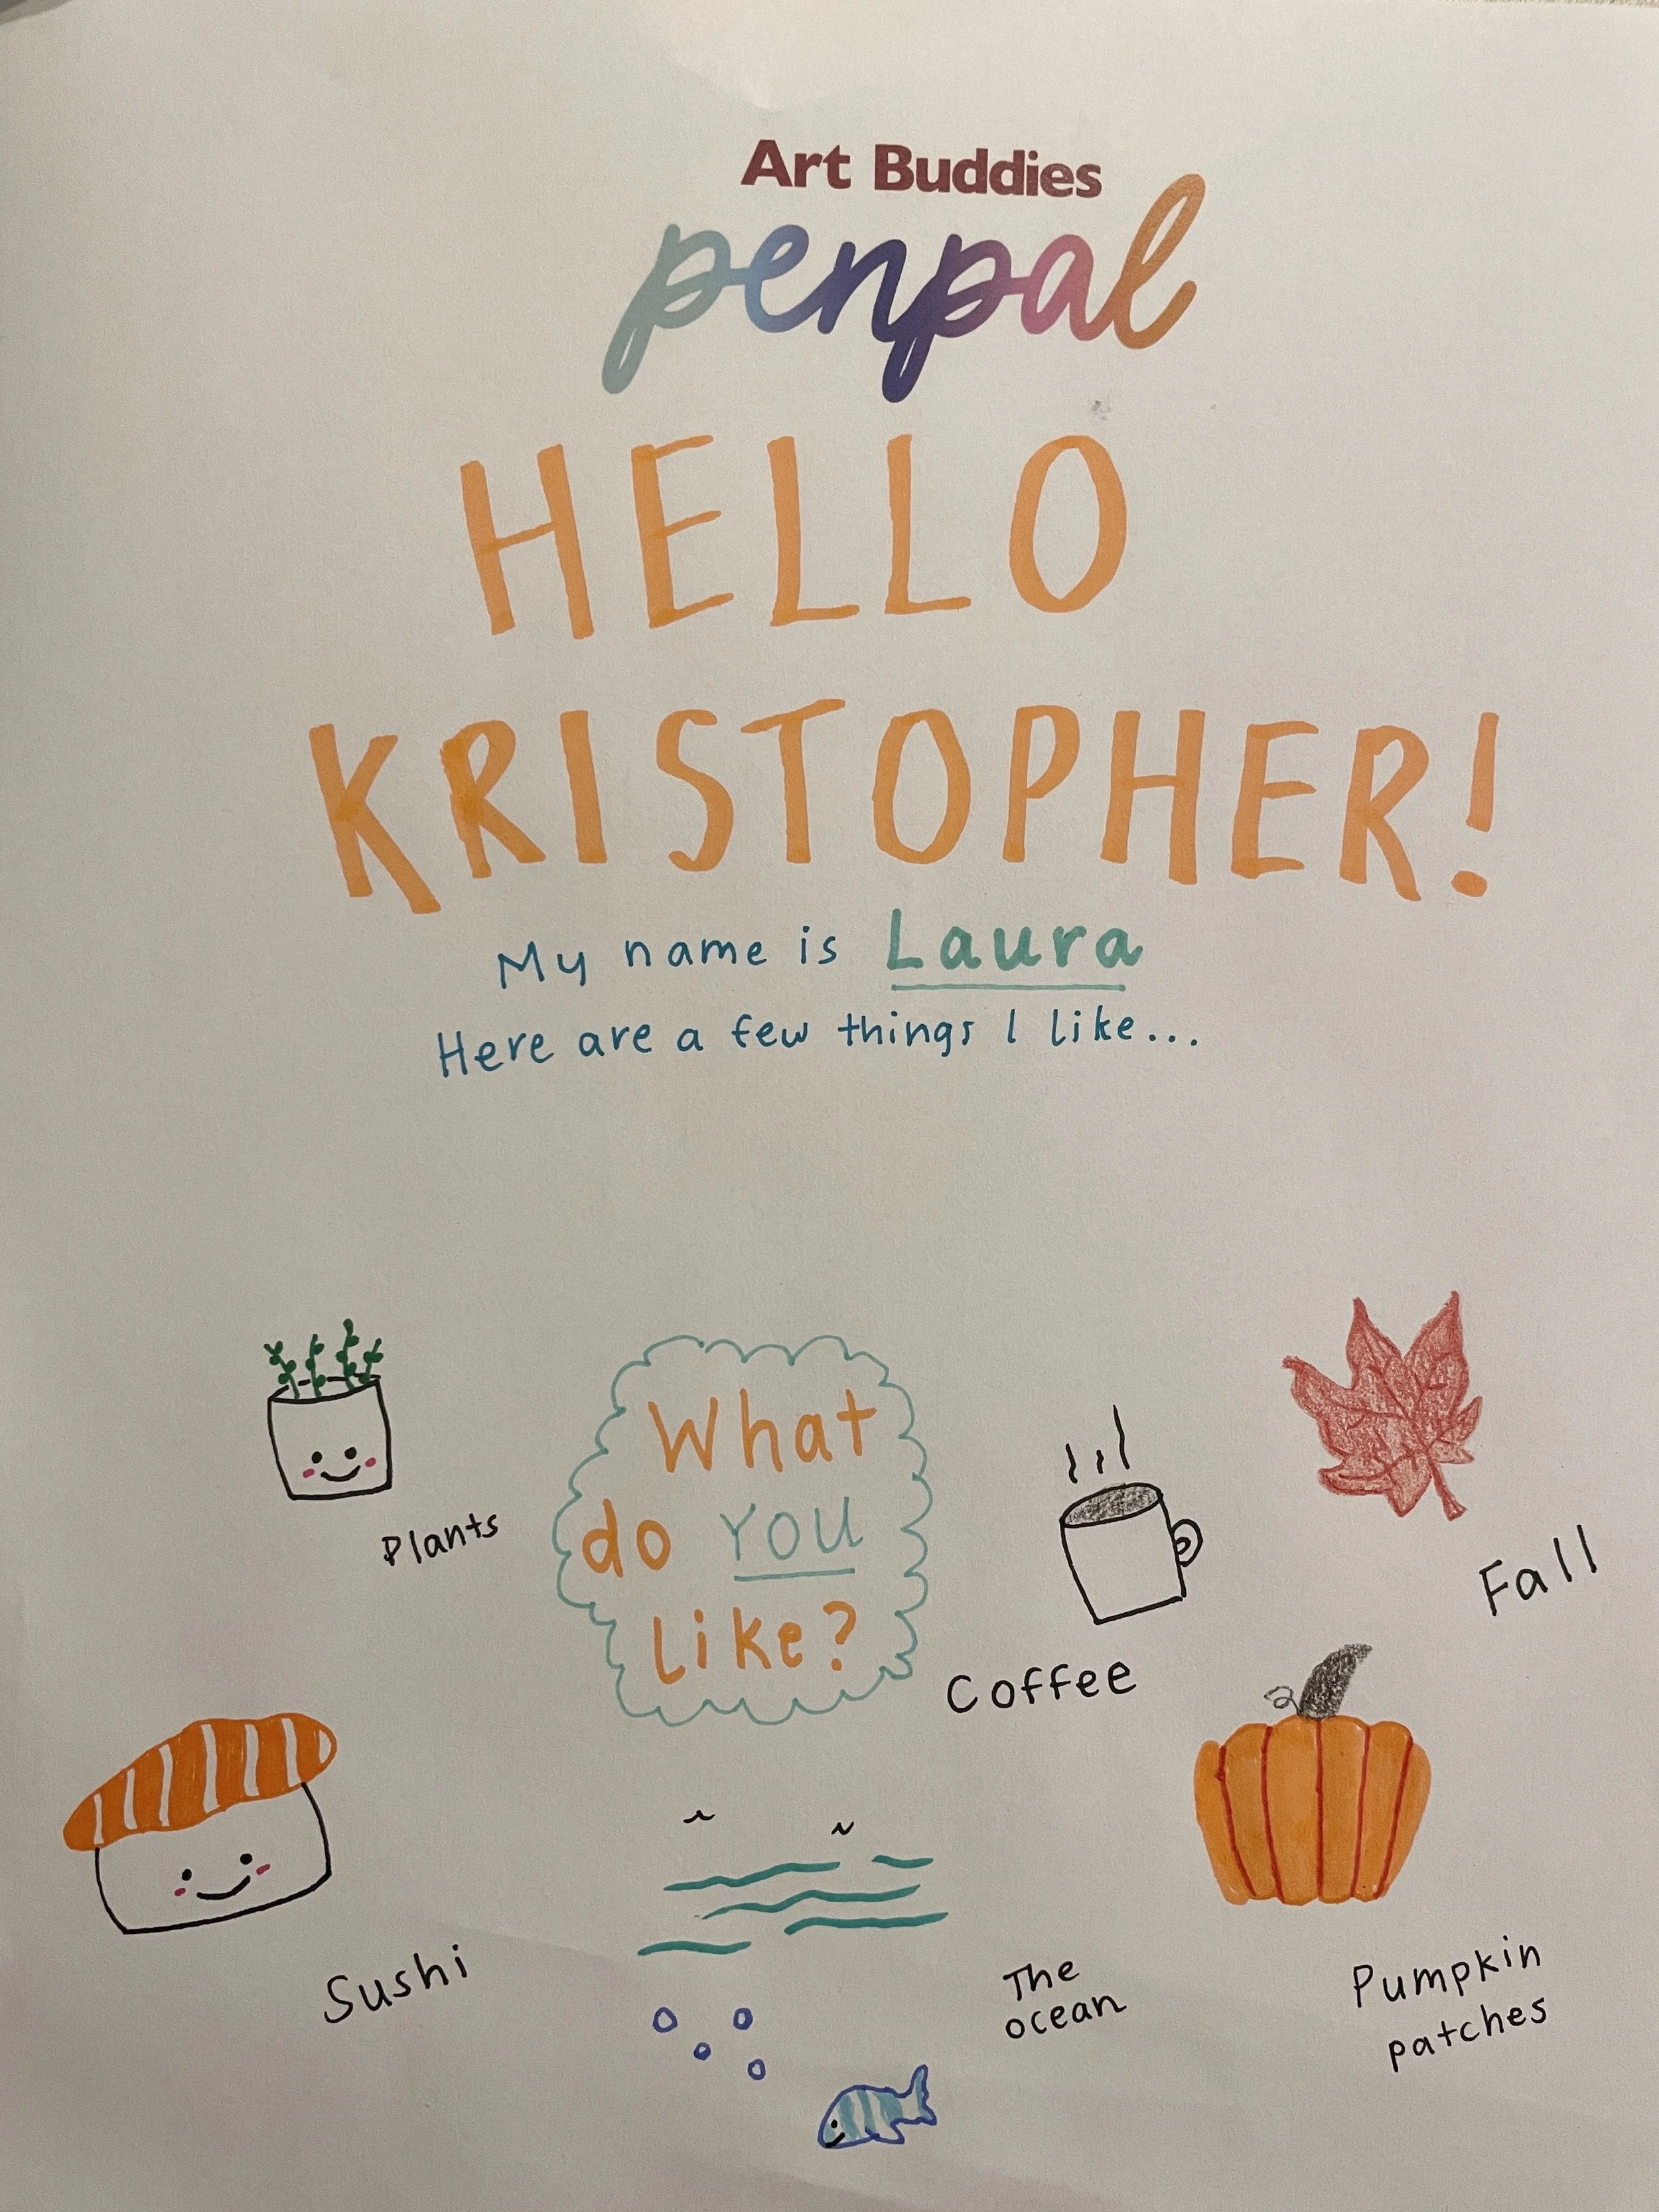 Art Buddies
penpal
HELLO
KRISTOPHER!
My name is Laura
Here are a few things I like...
What
do YOU
like?
Plants
Coffee
Fall
Sushi
The
ocean
Pumpkin
patches